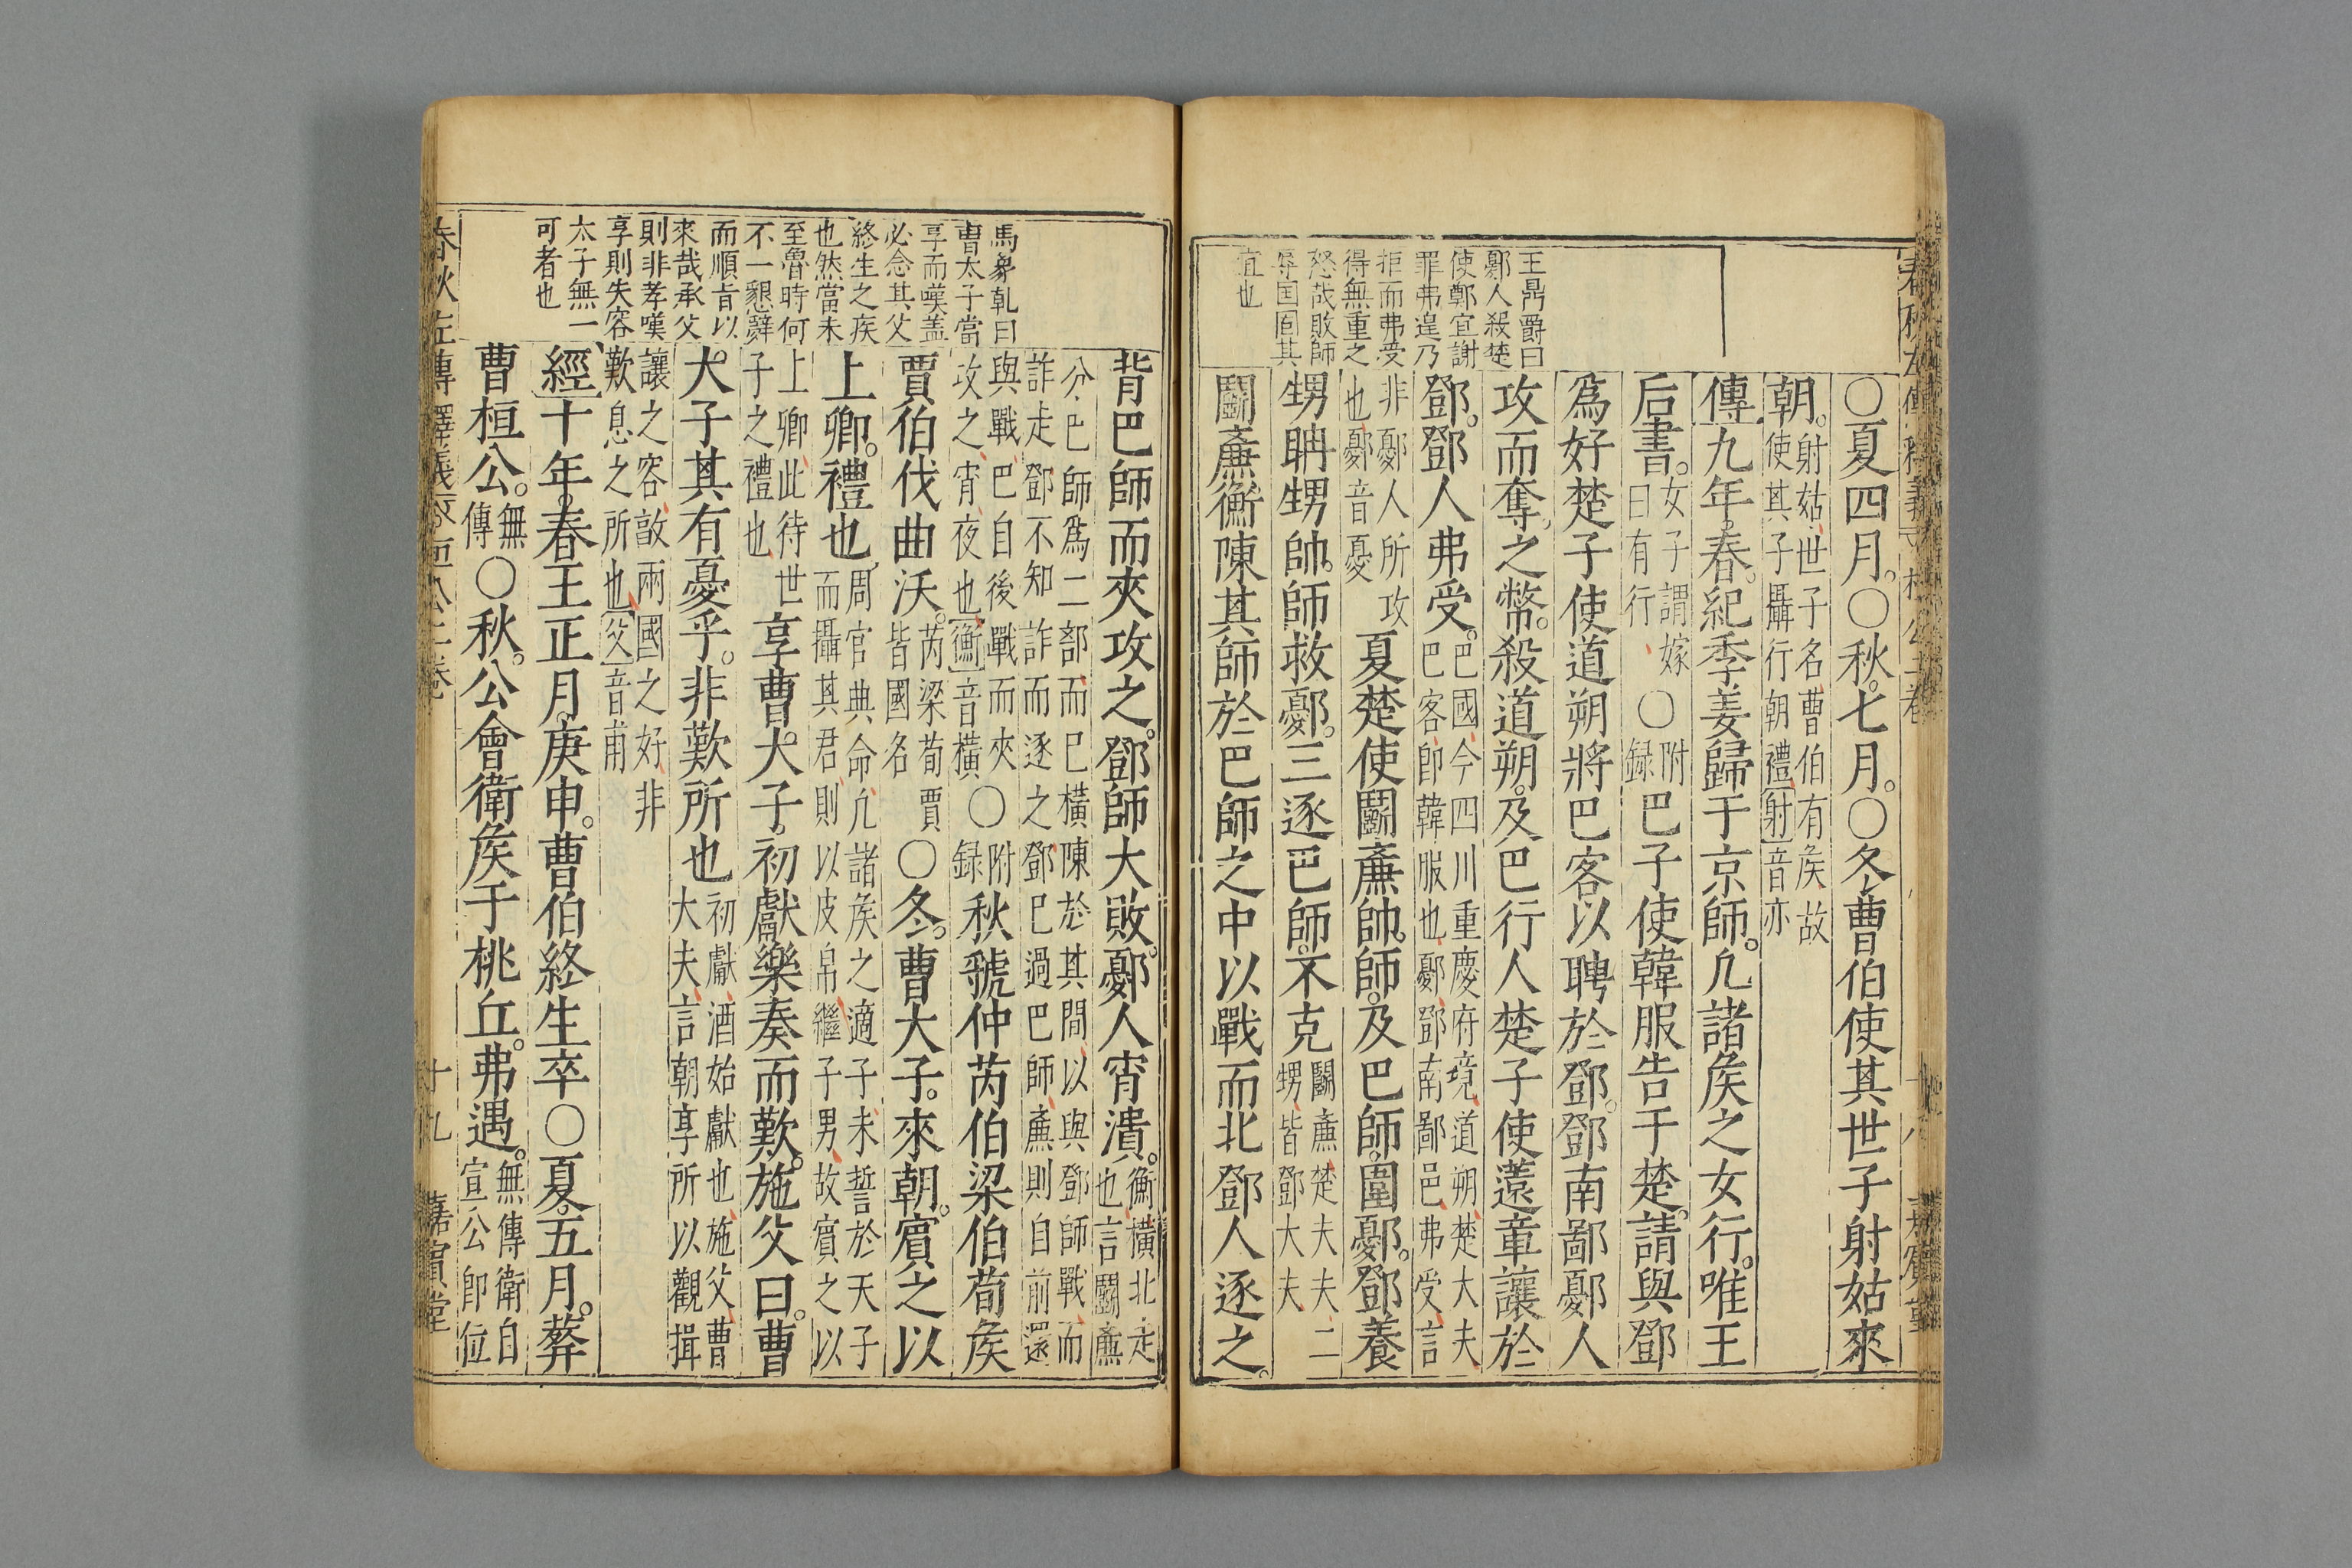 王鼎爵曰
鄾人殺楚
使鄭宜謝
罪弗遑乃
拒而弗受
得無重之
怒哉敗師
辱国固其
宜也
○夏四月○秋七月○冬曹伯使其世子射姑來
朝射姑世子名曹伯有矦故
使其子攝行朝禮射音亦
傳九年春紀季姜歸于京師凢諸矦之女行唯王
后書女子謂嫁
曰有行○附
録巴子使韓服告于楚請與鄧
爲好楚子使道朔將巴客以聘於鄧鄧南鄙鄾人
攻而奪之幣殺道朔及巴行人楚子使薳章讓於
鄧鄧人弗受巴國今四川重慶府境道朔楚大夫
巴客卽韓服也鄾鄧南鄙邑弗受言
非鄾人所攻
也鄾音憂夏楚使鬭廉帥師及巴師圍鄾鄧養
甥聃甥帥師救鄾三逐巴師不克鬭廉楚大夫二
甥皆鄧大夫
鬭廉衡陳其師於巴師之中以戰而北鄧人逐之
馬象乹曰
曹太子當
享而嘆盖
必念其父
終生之疾
也然當未
至魯時何
不一懇辭
而順旨以
來哉承父
則非孝嘆
享則失容
太子無一
可者也
背巴師而夾攻之鄧師大敗鄾人宵潰衡橫北走
也言鬭廉
分巴師爲二部而巴橫陳於其間以與鄧師戰而
詐走鄧不知詐而逐之鄧巴過巴師廉則自前還
與戰巴自後戰而夾
攻之宵夜也衡音橫○附
録秋虢仲芮伯梁伯荀矦
賈伯伐曲沃芮梁荀賈
皆國名○冬曹大子來朝賔之以
上卿禮也周官典命凢諸矦之適子未誓於天子
而攝其君則以皮帛繼子男故賔之以
上卿此待世
子之禮也享曹大子初獻樂奏而歎施父曰曹
大子其有憂乎非歎所也初獻酒始獻也施父曹
大夫言朝享所以觀揖
讓之容敨兩國之好非
歎息之所也父音甫
經十年春王正月庚申曹伯終生卒○夏五月葬
曹桓公無
傳○秋公會衛矦于桃丘弗遇無傳衛自
宣公卽位
春秋左傳釋義
十九
嘉賔堂